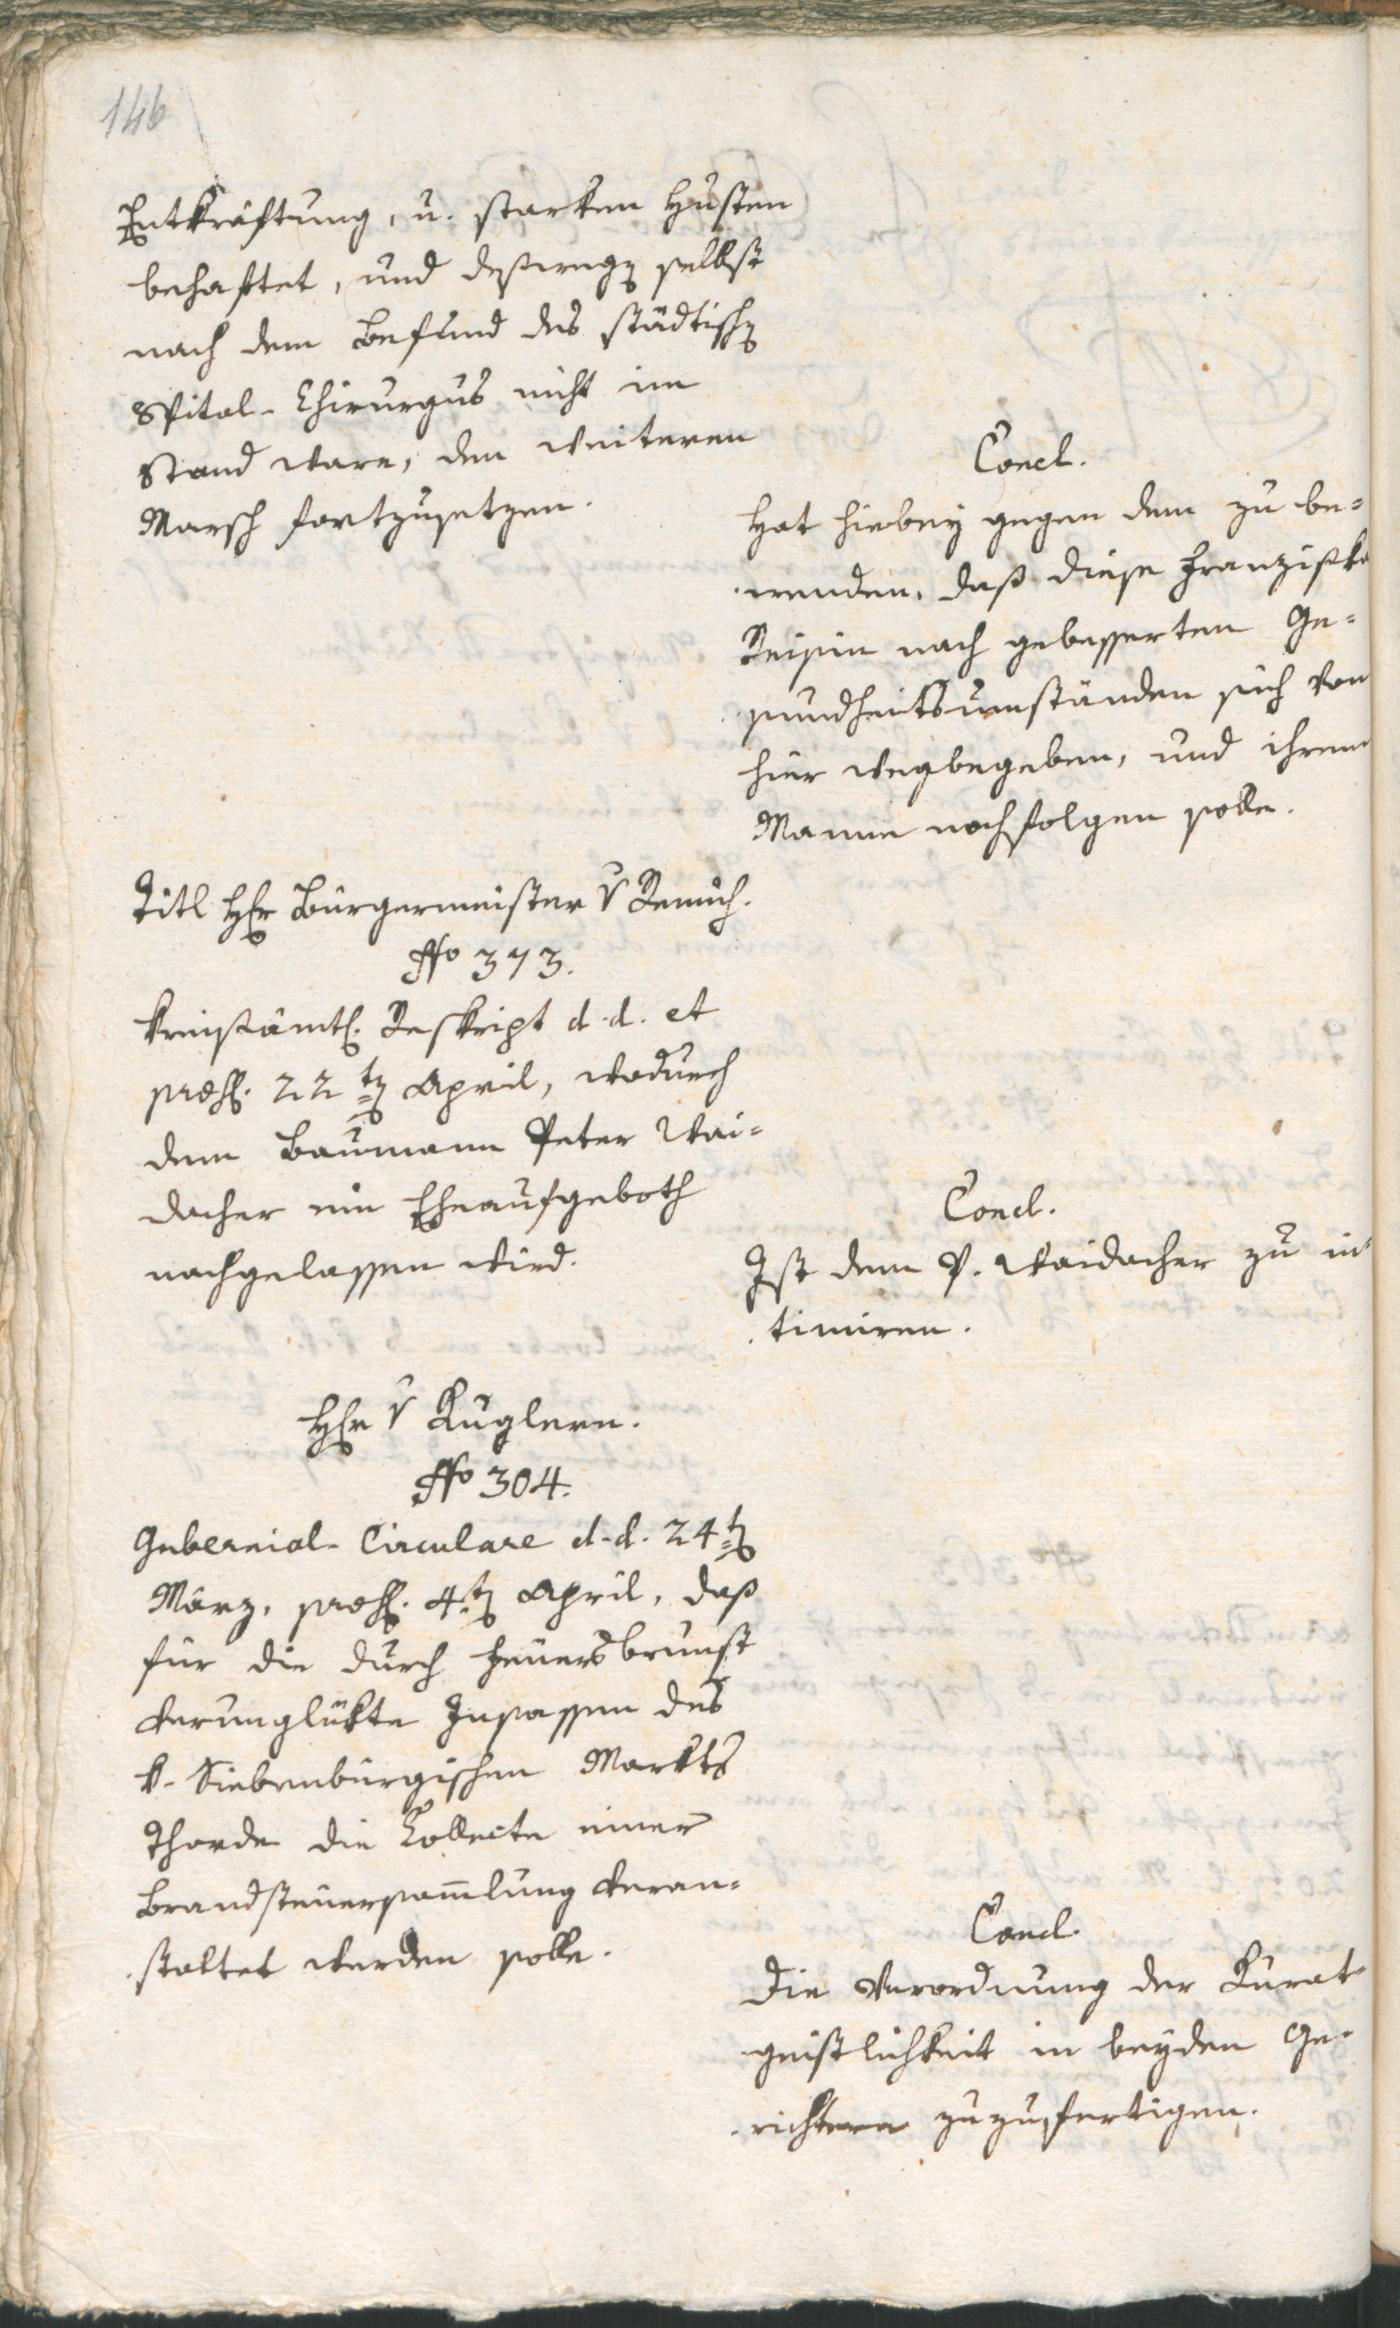 146
Entkräftung, u. starken Husten
behaftet, und deßwegen selbst
nach dem Befund des städtischen
Spital-Chirurgus nicht im
Stand ware, den weiteren
Marsch fortzusetzen.
Concl.
Hat hiebey gegen dem zu be=
wenden, daß diese Franziska
Reisin nach gebesserten Ge=
sundheitsumständen sich von
hier wegbegeben, und ihrem
Manne nachfolgen solle.
Titl Herr Bürgermeister v Remich.
No 373.
Kreisämtl. Reskript d. d. et
praes. 22ten April, wodurch
dem Baumann Peter Wai=
dacher ein Eheaufgeboth
nachgelassen wird.
Concl.
Ist dem P. Waidacher zu in=
timiren.
Herr v Kuglern.
No 304.
Gubernial-Circulare d. d. 24ten
März, praes. 4ten April, daß
für die durch Feuersbrunst
verunglükte Insassen des
k. Siebenbürgischen Markts
Thorda die Kollecte einer
Brandsteuersammlung veran=
staltet werden solle.
Concl.
Die Verordnung der Kurat=
geistlichkeit in beyden Ge=
richtern zuzufertigen.